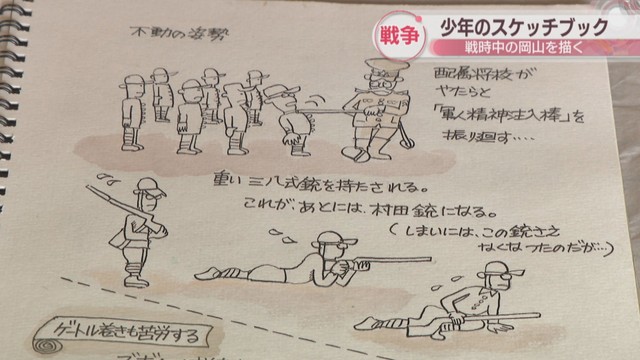 戦争
少年のスケッチブック
戦時中の岡山を描く
不動の姿勢
配属将校が
やたらと
「軍人精神注入棒」を
振り廻す‥‥
重い三八式銃を持たされる。
これが、あとには、村田銃になる。
(しまいには、この銃さえ
なくなったのだが…)
ゲートル巻きも苦労する